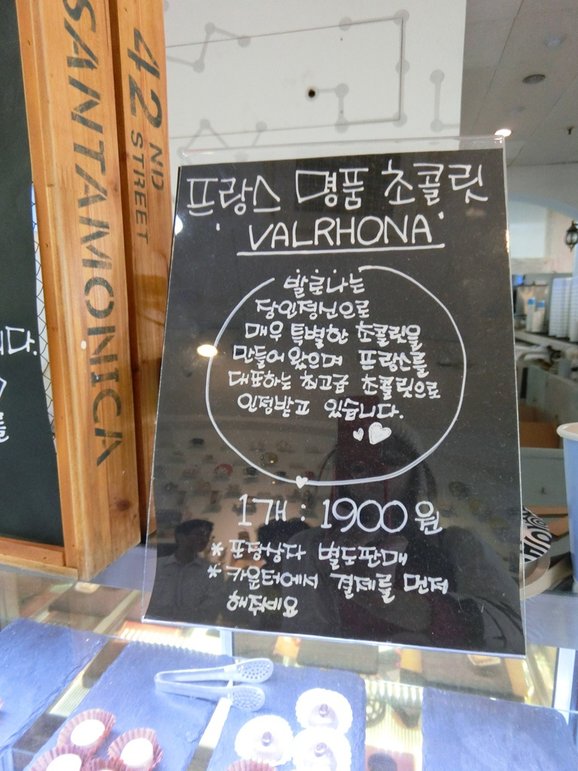 SANTAMONICA
42 ND
STREET
프랑스 명품 초콜릿
'VALRHONA'
발로나는
장인정신으로
매우 특별한 초콜릿을
만들어 왔으며 프랑스를
대표하는 최고급 초콜릿으로
인정받고 있습니다.
1개 : 1900원
* 포장상자 별도판매
* 카운터에서 결제를 먼저
해주세요
니다.
를